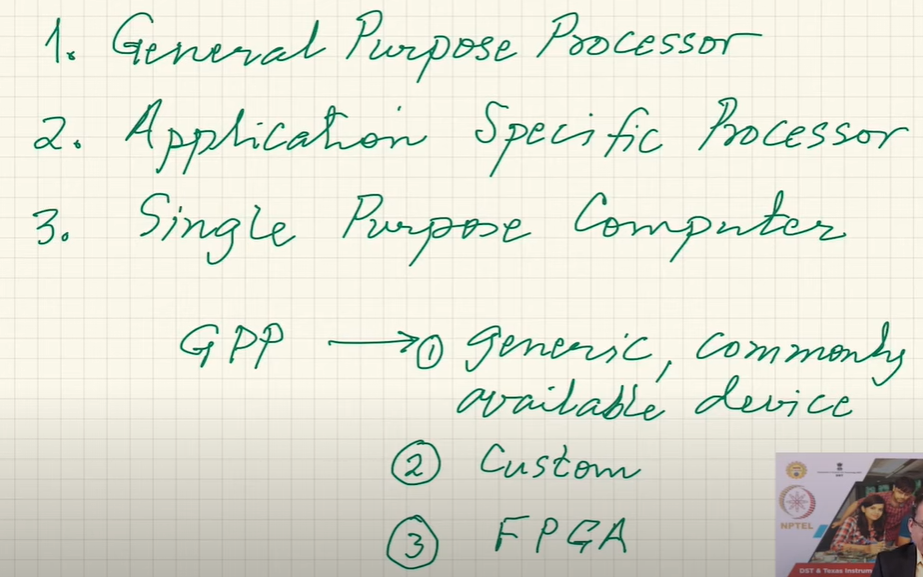 1. General Purpose Processor
2. Application Specific Processor
3. Single Purpose Computer
GPP → ① generic, commonly
available device
② Custom
③ FPGA
NPTEL
DST & Texas Instrum